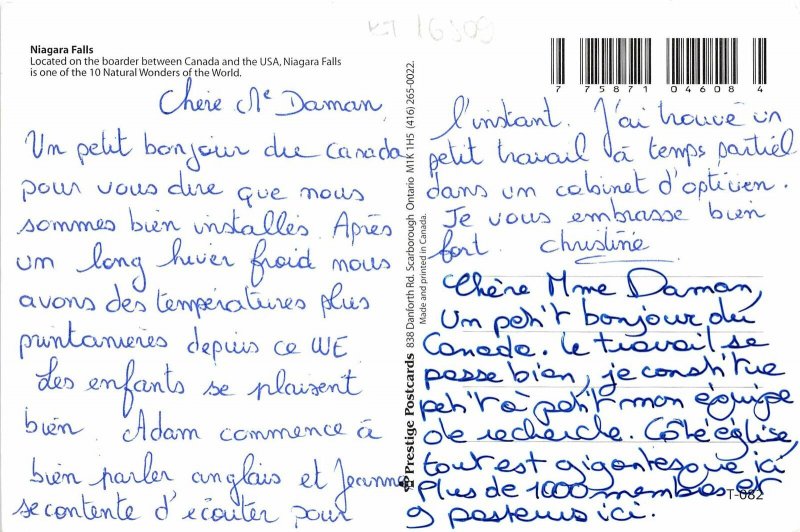 16309
Niagara Falls
Located on the boarder between Canada and the USA, Niagara Falls
is one of the 10 Natural Wonders of the World.
7 75871 04608 4
Chère Me Daman,
Un petit bonjour du Canada
pour vous dire que nous
sommes bien installés. Après
un long hiver froid nous
avons des températures plus
printanières depuis ce WE
Les enfants se plaisent
bien. Adam commence à
bien parler anglais et Jeanne
se contente d'écouter pour
Prestige Postcards 838 Danforth Rd. Scarborough Ontario M1K 1H5 (416) 265-0022.
Made and printed in Canada.
l'instant. J'ai trouvé un
petit travail à temps partiel
dans un cabinet d'opticien.
Je vous embrasse bien
fort. Christine
Chère Mme Daman,
Un petit bonjour du
Canada. Le travail se
passe bien, je constitue
petit à petit mon équipe
de recherche. Côté église,
tout est gigantesque ici
Plus de 1000 membres et
9 pasteurs ici.
T-082